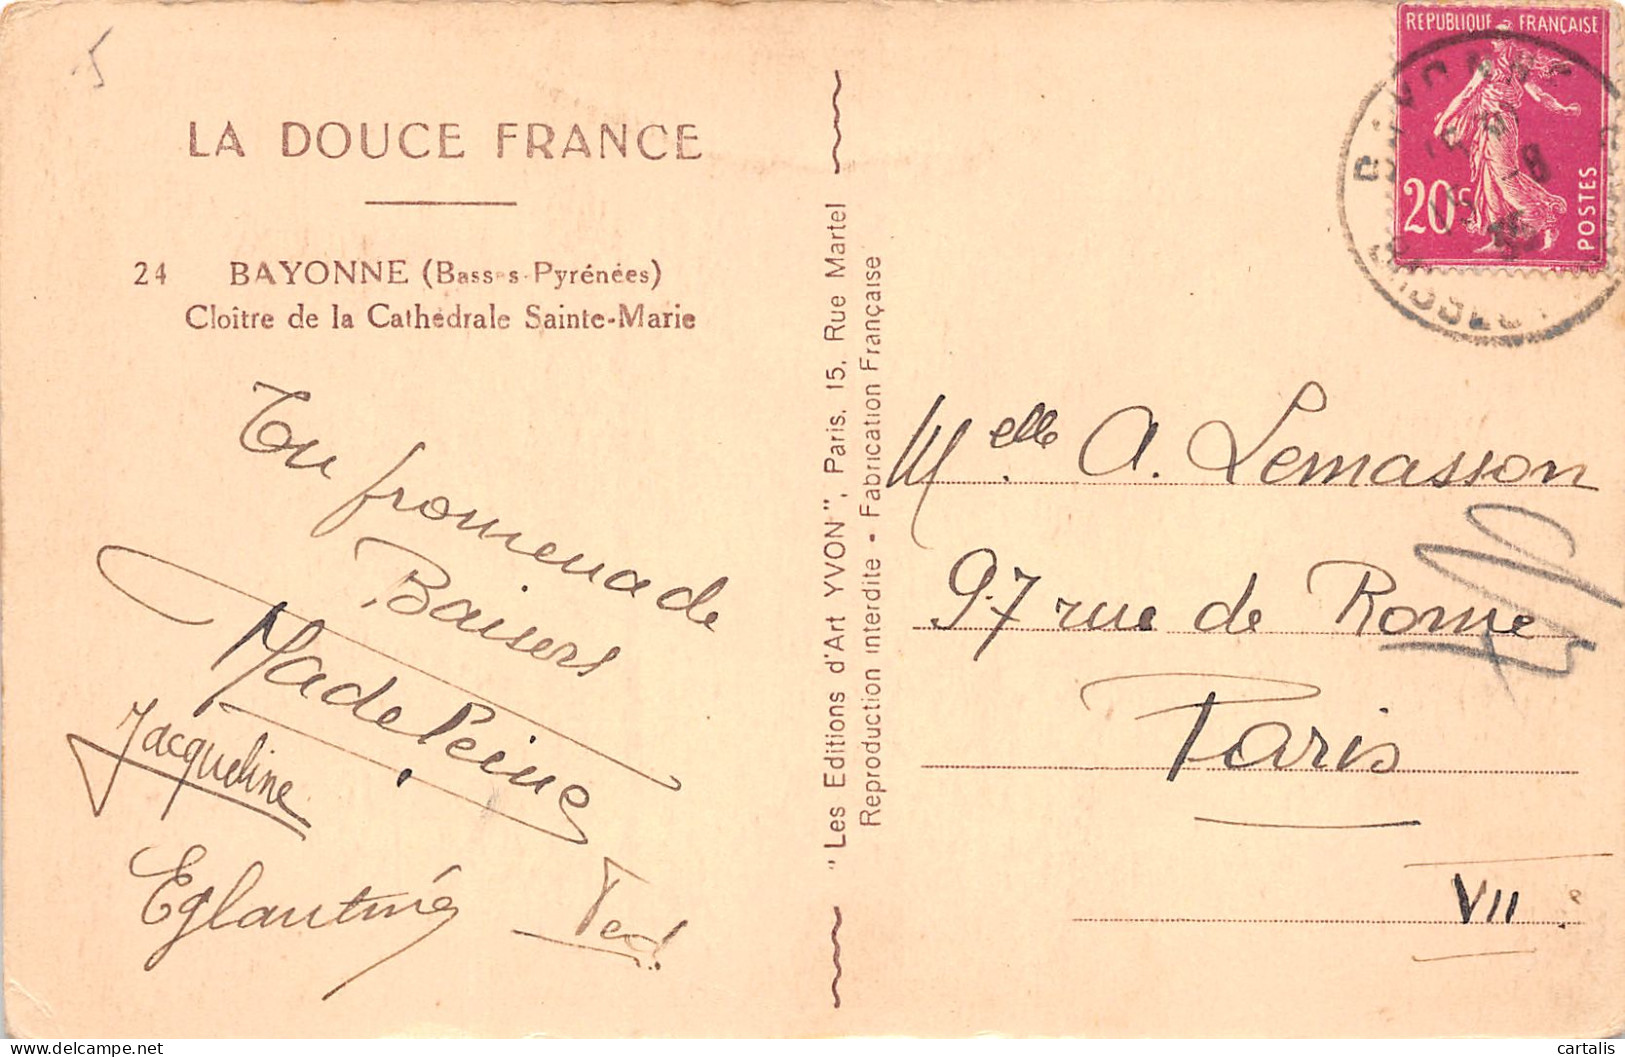 5
LA DOUCE FRANCE
24 BAYONNE (Basses-Pyrénées)
Cloître de la Cathédrale Sainte-Marie
En promenade
Baisers
Madeleine
Jacqueline
Eglantine
Ted.
"Les Editions d'Art YVON", Paris, 15, Rue Martel
Reproduction interdite - Fabrication Française
REPUBLIQUE FRANÇAISE
20c
POSTES
BAYONNE
Melle A. Lemasson
97 rue de Rome
Paris
VII
cartalis